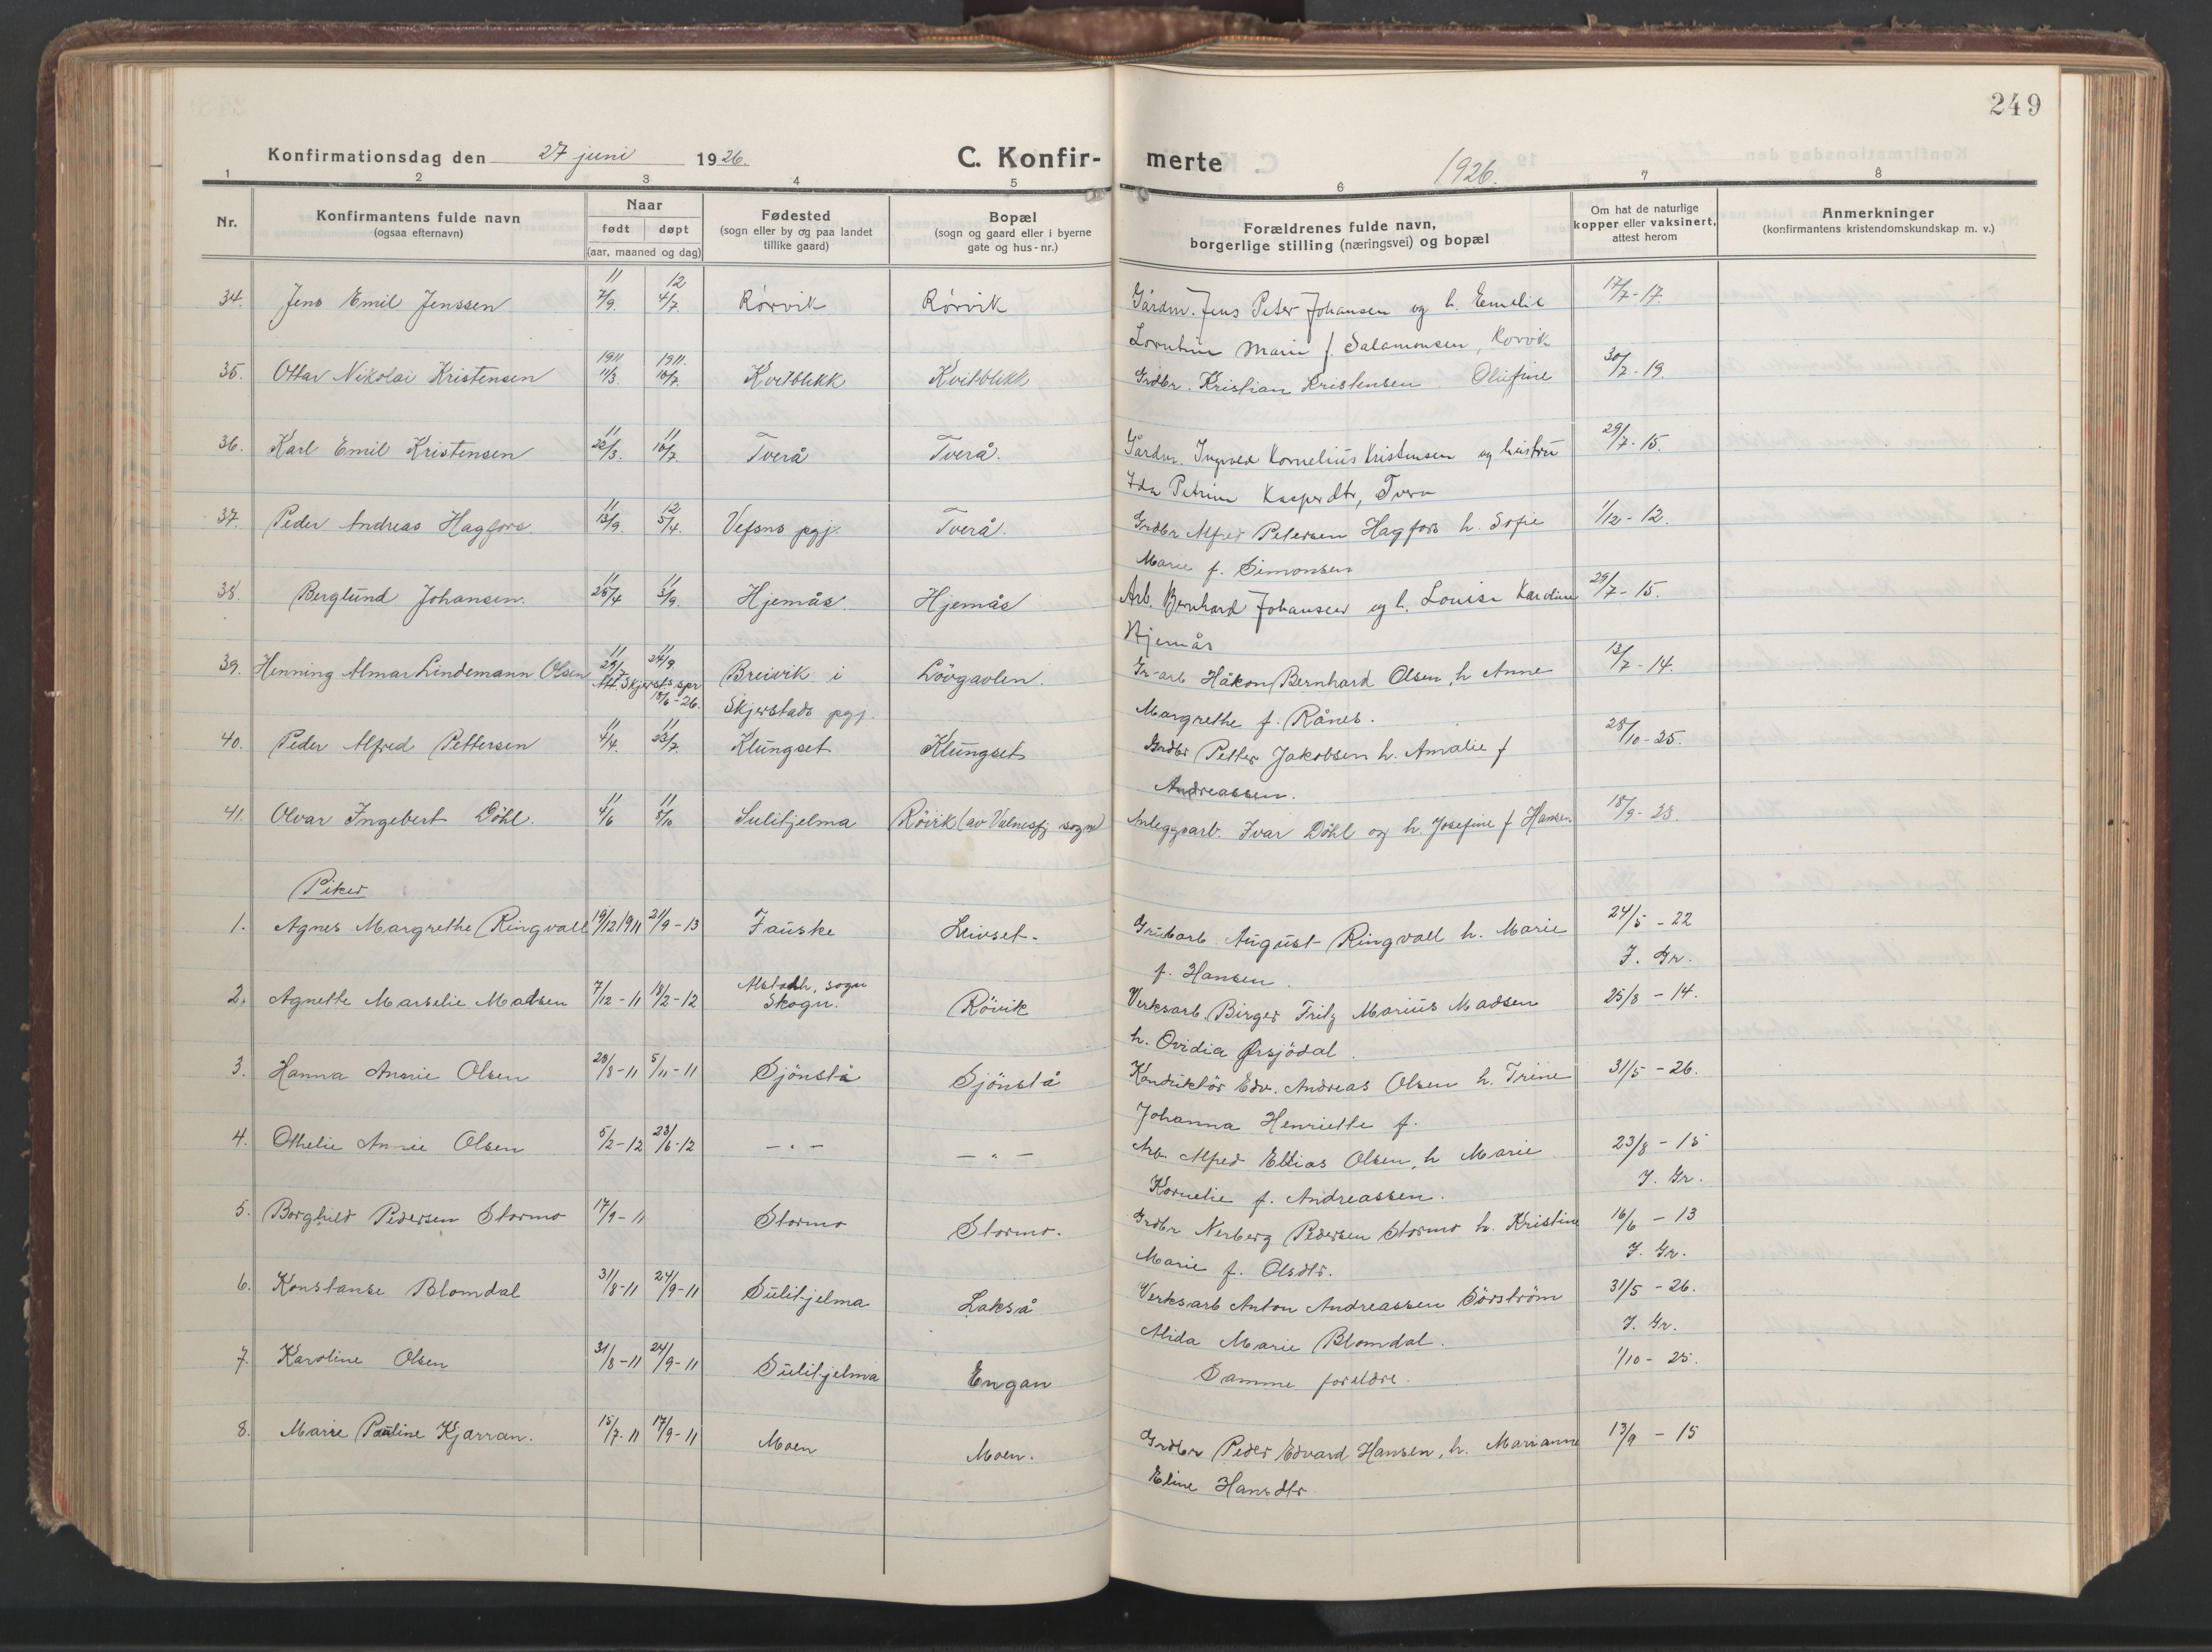 249
Konfirmationsdag den 27 juni 1926. C. Konfirmerte 1926.
1 2 3 4 5 6 7 8
Nr.
Konfirmantens fulde navn
(ogsaa efternavn)
Naar
født døpt
(aar, maaned og dag)
Fødested
(sogn eller by og paa landet
tillike gaard)
Bopæl
(sogn og gaard eller i byerne
gate og hus-nr.)
Forældrenes fulde navn,
borgerlige stilling (næringsvei) og bopæl
Om hat de naturlige
kopper eller vaksinert,
attest herom
Anmerkninger
(konfirmantens kristendomskundskap m. v.)
11 12
34. Jens Emil Jenssen 7/9. 4/7. Rörvik Rörvik Gårdm. Jens Peter Johansen og h. Emelie 17/7-17.
Marie f. Salamonsen, Rörvik
1911 1911.
35. Ottar Nikolai Kristensen 11/3. 16/7. Kvitblikk Kvitblikk Grdbr. Kristian Kristensen Olufine 30/7-19.
11 11
36. Karl Emil Kristensen 22/3. 16/7. Tverå Tverå. Gårdm. Ingvald Kornelius Kristensen og hustru 29/7-15.
Ida Petrine Kasperdtr, Tverå
11 12
37. Peder Andreas Hagfors. 13/9. 5/4. Vefsns pgj. Tverå. Grdbr Alfred Petersen Hagfors h. Sofie 1/12-12.
Marie f. Simonsen
11 11
38. Berglund Johansen. 25/4 3/9. Hjemås. Hjemås Arb. Bernhard Johansen og h. Louise Karoline 29/7-15.
Hjemås
11 11
39. Henning Almar Lindemann Olsen 29/7 24/9. Breivik i Lövgavlen. Gr-arb Håkon Bernhard Olsen, h Anne 13/7-14.
Att. Skjerst. spr
18/6-26. Skjerstads pgj. Margrethe f. Rånes.
11 11
40. Peder Alfred Pettersen 4/4. 23/7. Klungset Klungset Grdbr Petter Jakobsen h. Amalie f 28/10-25.
Andreassen.
11 11
41. Olvar Ingebert Döhl. 4/6 8/10 Sulitjelma Rövik (av Valnesfj sogn) Anleggsarb. Ivar Döhl og h. Josefine f Hansen 18/9-23.
Piker
1. Agnes Margrethe Ringvall 19/12 1911 21/9-13 Fauske Leivset. Grubarb. August Ringvall h. Marie 24/5-22
f. Hansen. J. Gr.
2. Agnette Marselie Madsen 7/12-11 18/2-12 Alstadh. sogn
Skogn. Röivik Verksarb. Birger Fritz Marius Madsen 25/8-14.
h. Ovidia Ørsjödal.
3. Hanna Annie Olsen 28/8-11 5/11-11 Sjönstå Sjönstå Konduktör Edv. Andreas Olsen h. Trine 31/5-26.
Johanna Henriette f.
4. Othelie Annie Olsen 5/2-12 23/6-12 -"- -"- Arb. Alfred Ellias Olsen, h Marie 23/8-15
Kornelie f. Andreassen. J. Gr.
5. Borghild Pedersen Stormo 17/9-11 Stormo Stormo. Grdbr Nerberg Pedersen Stormo h. Kristine 16/6-13
Marie f. Olsdtr. J. Gr.
6. Konstanse Blomdal 31/8-11 24/9-11 Sulitjelma Lakså Verksarb Anton Andreassen Sörström 31/5-26.
Alida Marie Blomdal. J. Gr.
7. Karoline Olsen 31/8-11 24/9-11 Sulitjelma Engan Samme foreldre. 1/10-25.
8. Marie Pauline Kjarran. 15/7-11 17/9-11 Moen Moen. Grdbr Peder Edvard Hansen, h. Marianne 13/9-15
Eline Hansdtr.